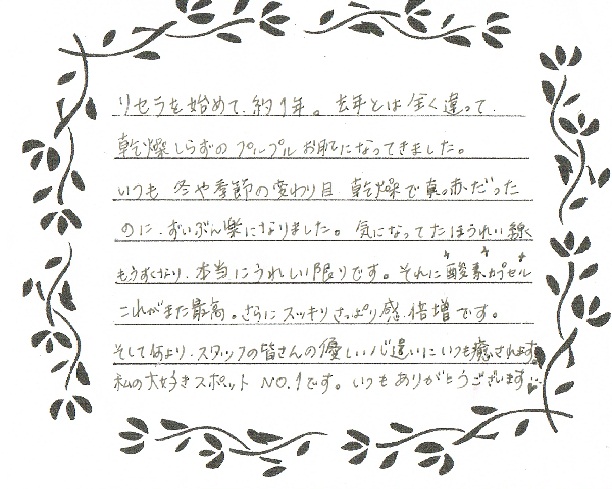 リセラを始めて、約1年。去年とは全く違って、
乾燥しらずのプルプルお肌になってきました。
いつも 冬や季節の変わり目 乾燥で真っ赤だった
のに、ずいぶん楽になりました。気になってたほうれい線も
もうすくなり、本当にうれしい限りです。それに酸素カプセル
これがまた最高。さらにスッキリさっぱり感、倍増です。
そして何より、スタッフの皆さんの優しい心遣いにいつも癒されます。
私の大好きスポット NO.1です。いつもありがとうございます